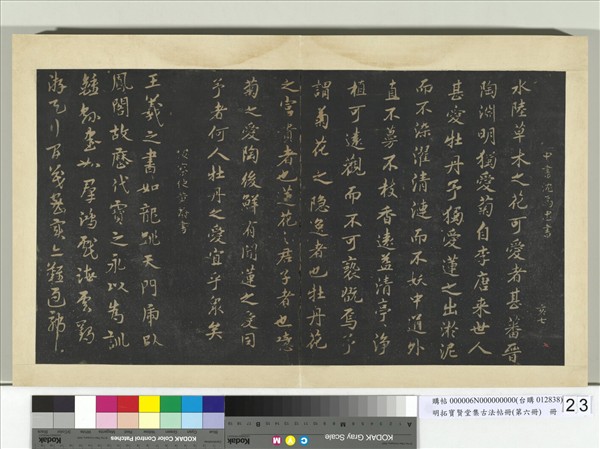 中書沈為忠書
水陸草木之花可愛者甚蕃晉
陶淵明獨愛菊自李唐来世人
甚愛牡丹予獨愛蓮之出淤泥
而不染濯清漣而不妖中通外
直不蔓不枝香遠益清亭〻淨
植可遠觀而不可褻翫焉予
謂菊花之隐逸者也牡丹花
之富貴者也蓮花〻君子者也噫
菊之愛陶後鮮有聞蓮之愛同
予者何人牡丹之愛宜乎衆矣
王羲之書如龍跳天門虎臥
鳳閣故歷代寶之永以為訓
鍾繇書如羣鴻戲海雲鵠
游天
購帖 000006N000000000(台購 012838)
明拓寶賢堂集古法帖冊(第六冊) 冊
23
KODAK Color Control Patches
Kodak
KODAK Gray Scale
C Y M
Kodak